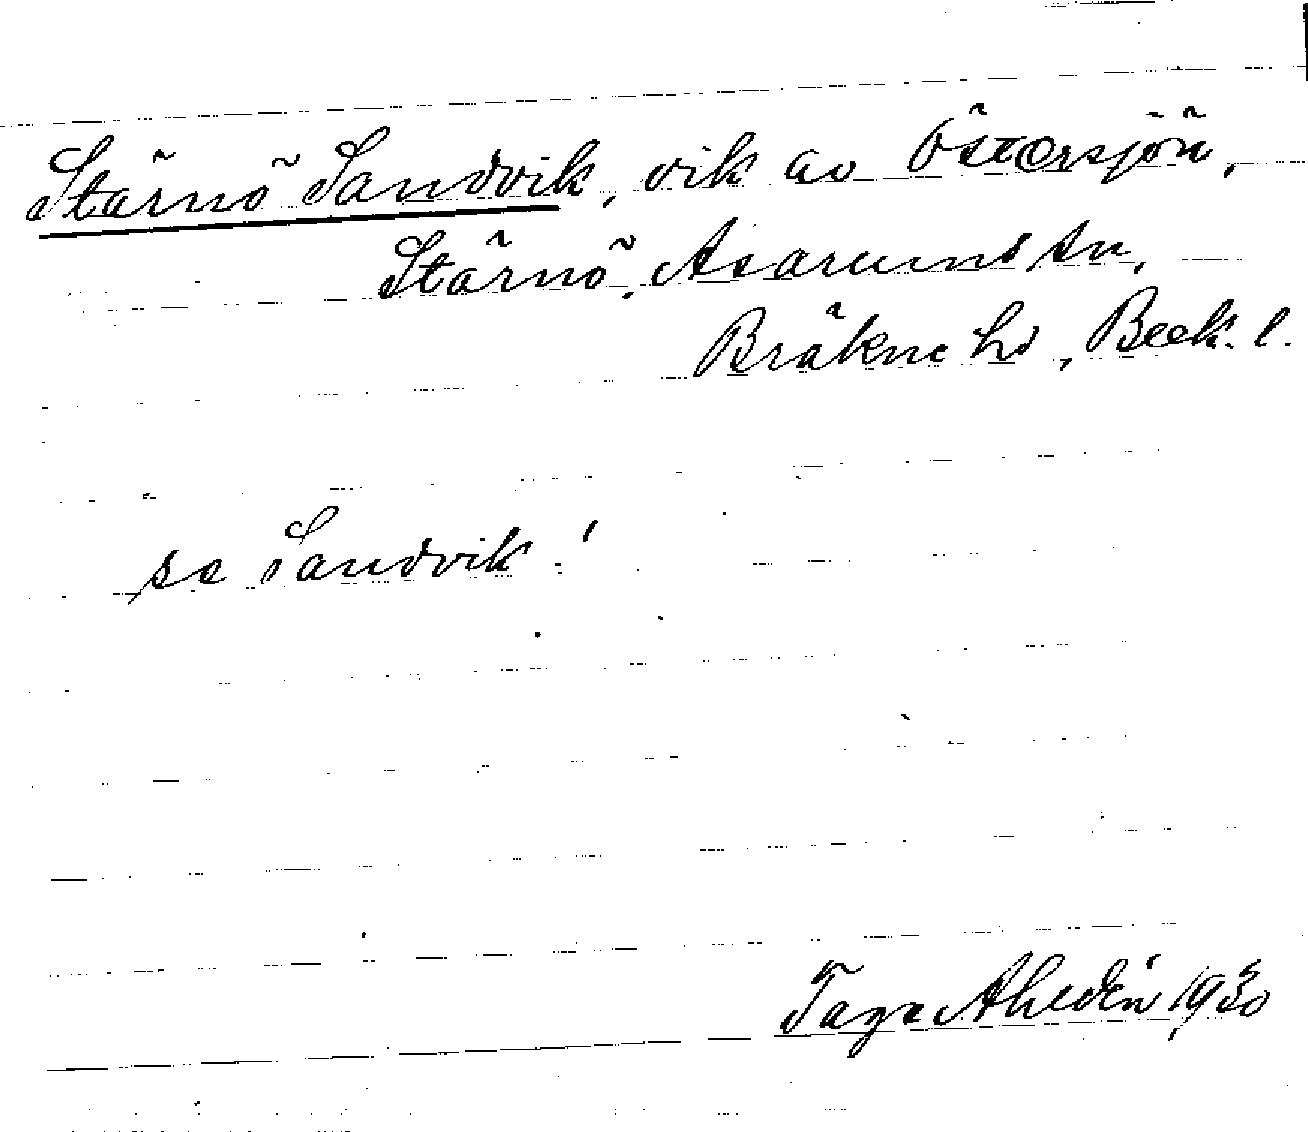 Stärnö Sandvik, vik av Östersjön,
Stärnö, Asarums sn,
Bräkne hd, Blek. l.
se Sandvik!
Tage Ahldén 1930